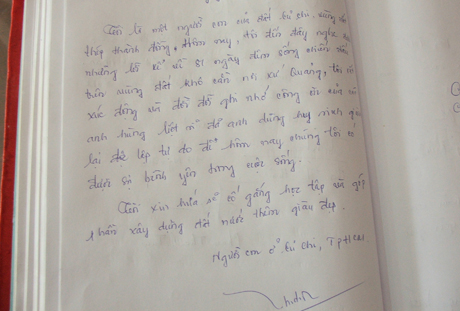 Tôi là một người con của đất Củ Chi, vùng đất
thép thành đồng, hôm nay, tôi đến đây nghe
những
trên vùng đất khô cằn nơi xứ Quảng, tôi
xúc động và đời đời ghi nhớ công ơn của
anh hùng liệt sĩ đã anh dũng hy sinh
lại độc lập tự do để hôm nay chúng tôi có
được sự bình yên trong cuộc sống.
Tôi xin hứa sẽ cố gắng học tập và góp
phần xây dựng đất nước thêm giàu đẹp.
Người con ở Củ Chi, TpHCM